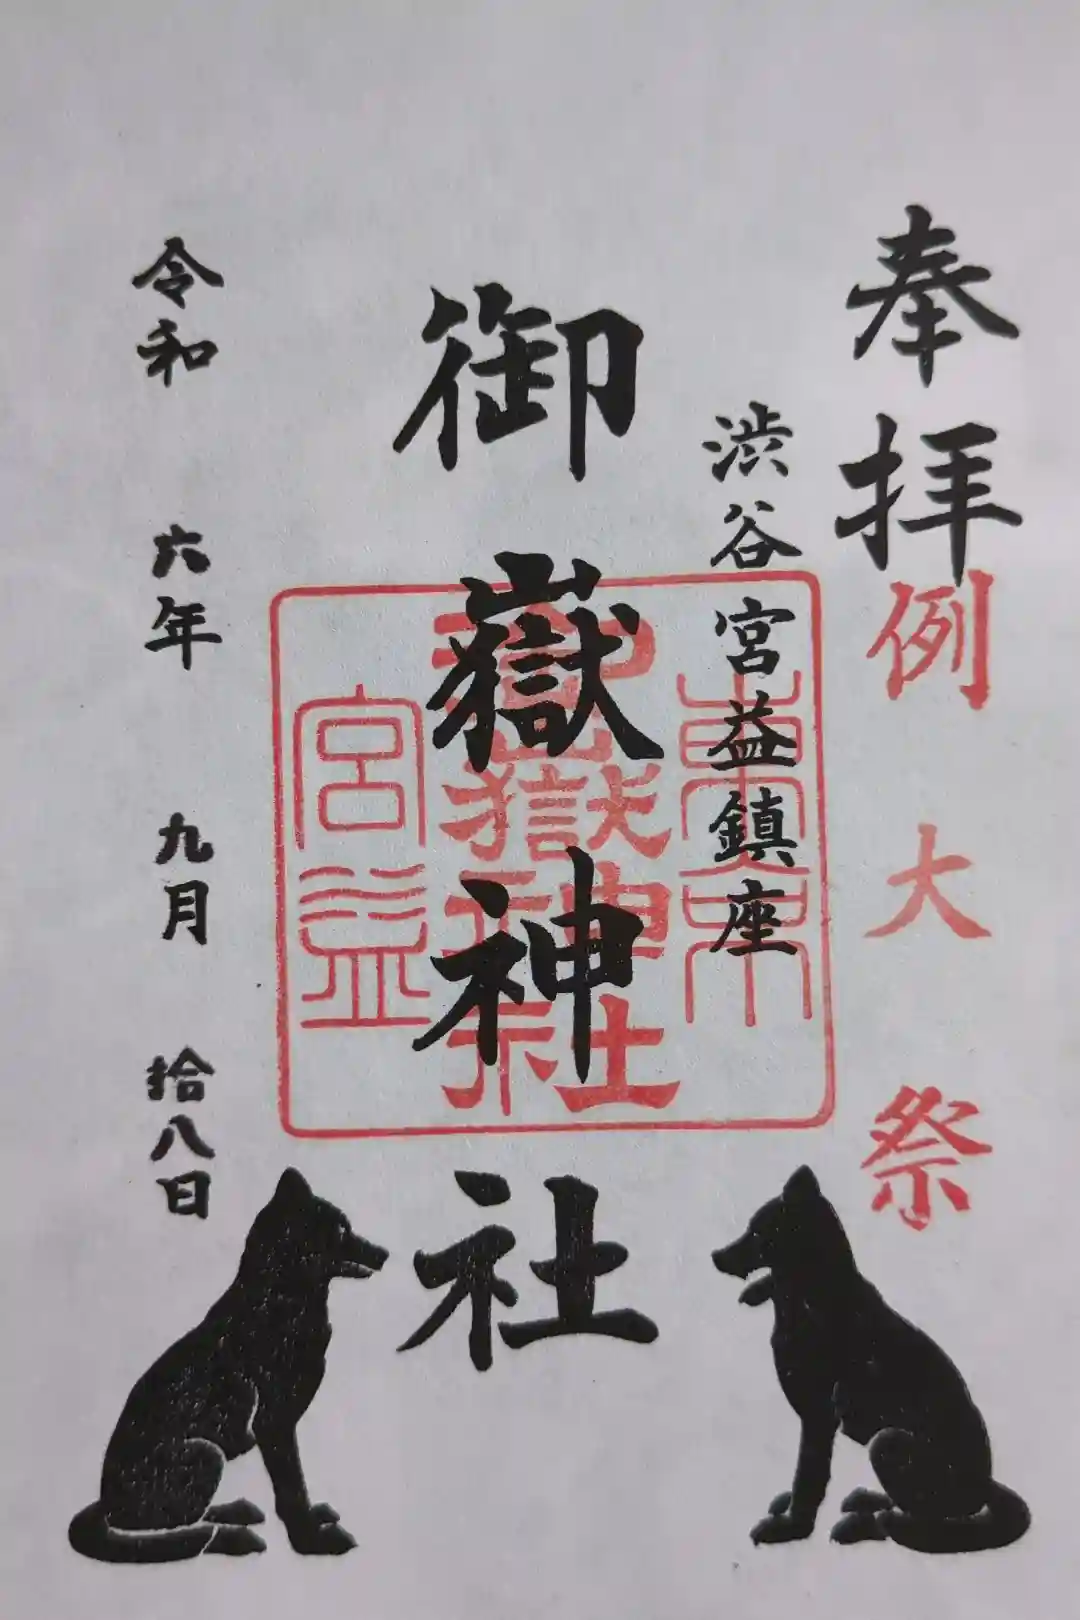 奉拝
例大祭
渋谷宮益鎮座
御嶽神社
東京
御嶽神社
宮益
令和六年九月拾八日